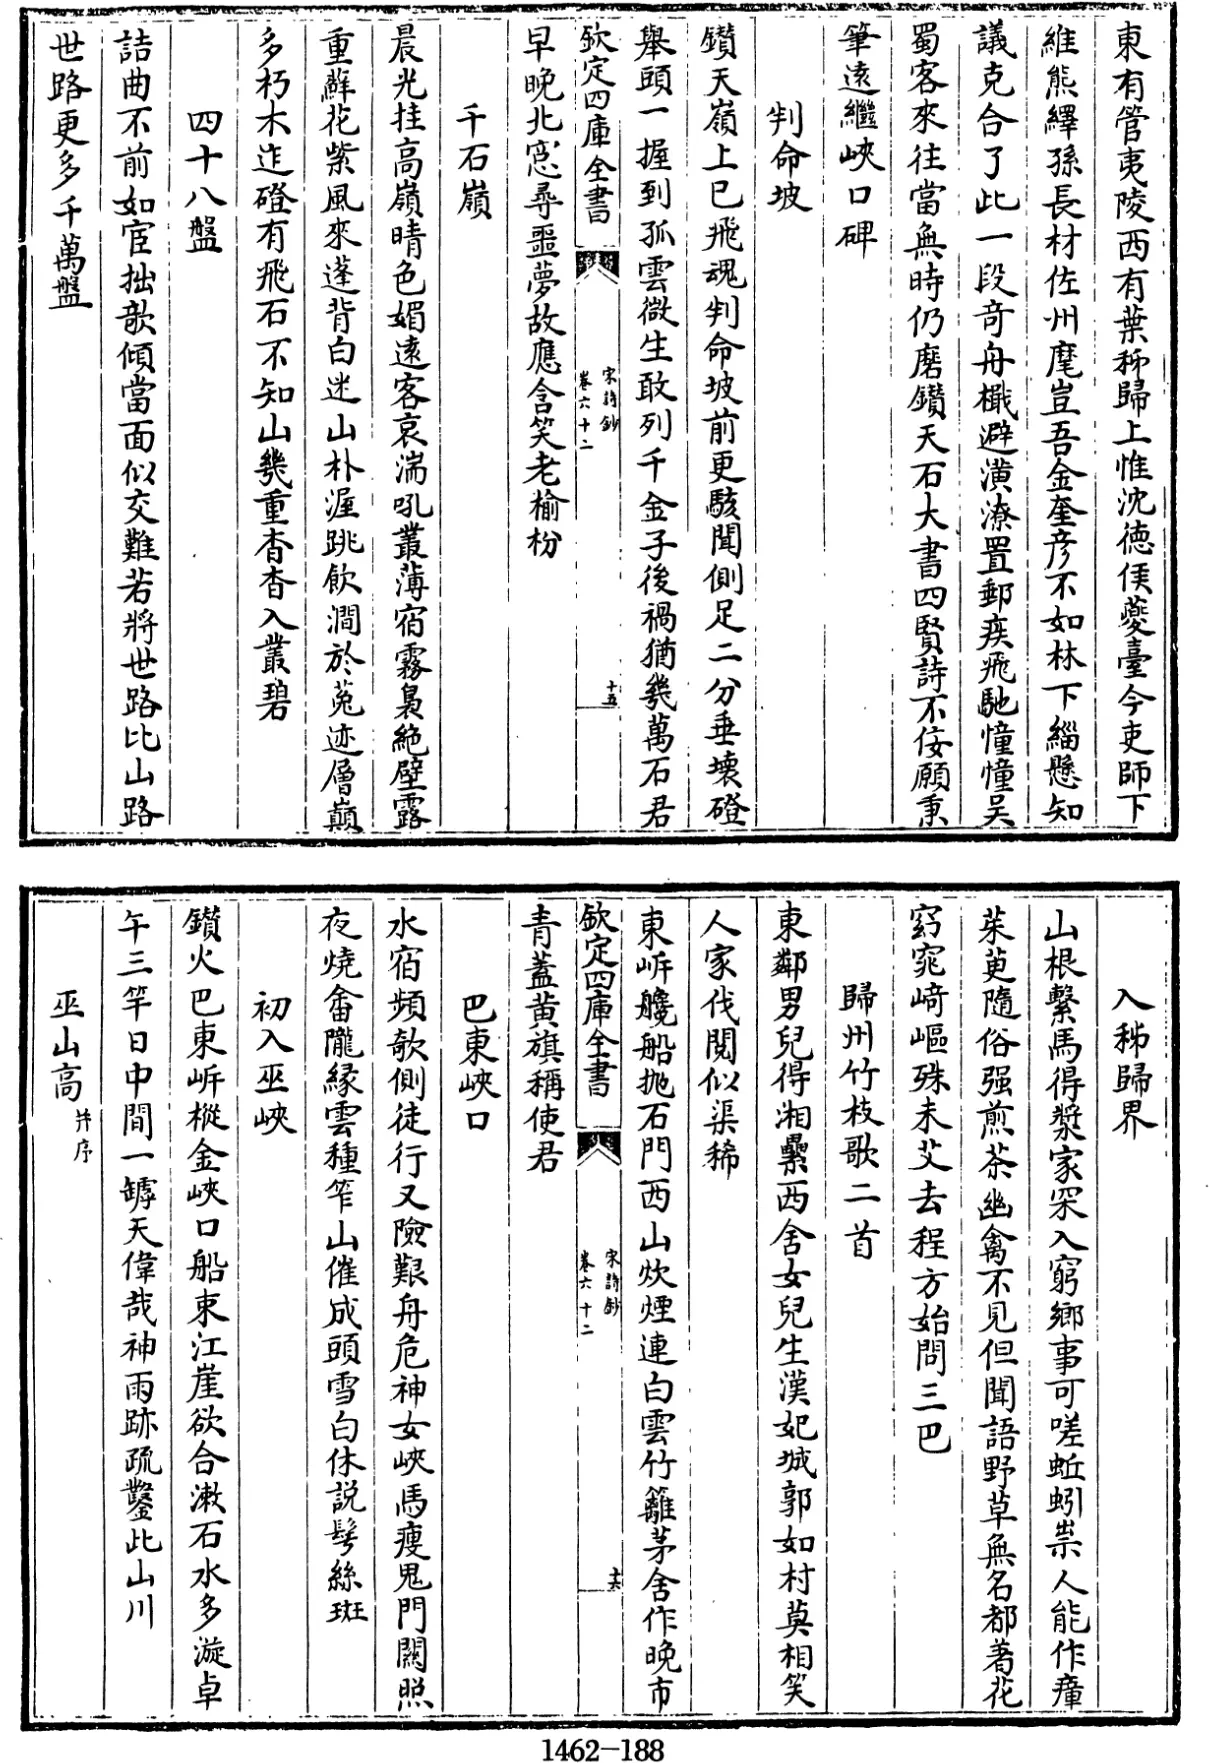 東有管夷陵西有葉秭歸上惟沈德俟夔臺今吏師下
維熊繹孫長材佐州麾豈吾金奎彦不如林下緇懸知
議克合了此一段奇舟檝避潢潦置郵疾飛馳憧憧吴
蜀客來往當無時仍磨鑽天石大書四賢詩不佞願秉
筆遠繼峽口碑
判命坡
鑽天嶺上已飛魂判命坡前更駭聞側足二分垂壞磴
舉頭一握到孤雲微生敢列千金子後禍猶幾萬石君
欽定四庫全書
宋詩鈔
卷六十二
十五
早晚北窓尋噩夢故應含笑老榆枌
千石嶺
晨光挂高嶺晴色媚遠客哀湍吼叢薄宿霧裊絶壁露
重蘚花紫風來蓬背白迷山朴渥跳飲澗於菟迹層巔
多朽木迮磴有飛石不知山幾重杳杳入叢碧
四十八盤
詰曲不前如宦拙欹傾當面似交難若將世路比山路
世路更多千萬盤
入秭歸界
山根繫馬得漿家深入窮鄉事可嗟蚯蚓祟人能作瘴
茱萸隨俗强煎茶幽禽不見但聞語野草無名都著花
窈窕﨑嶇殊未艾去程方始問三巴
歸州竹枝歌二首
東鄰男兒得湘纍西舍女兒生漢妃城郭如村莫相笑
人家伐閱似渠稀
東㟁艬船抛石門西山炊煙連白雲竹籬茅舍作晚市
欽定四庫全書
宋詩鈔
卷六十二
十六
青蓋黄旗稱使君
巴東峽口
水宿頻欹側徒行又險艱舟危神女峽馬瘦鬼門關照
夜燒畬隴緣雲種笮山催成頭雪白休説鬂絲斑
初入巫峽
鑽火巴東㟁樅金峽口船束江崖欲合漱石水多漩卓
午三竿日中間一罅天偉哉神雨跡疏鑿此山川
巫山高并序
1462-188